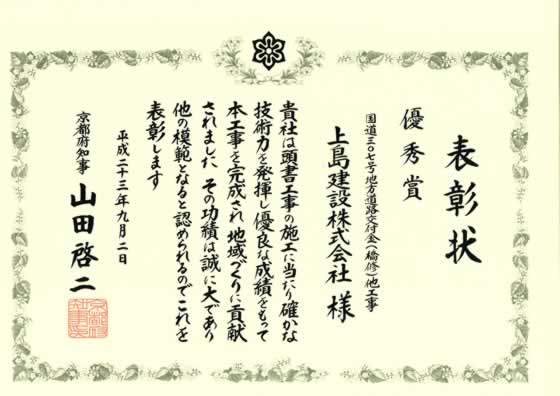 表彰状
優秀賞
国道三〇七号地方道路交付金(橋修)他工事
上島建設株式会社 様
貴社は頭書工事の施工に当たり確かな
技術力を発揮し優良な成績をもって
本工事を完成され地域づくりに貢献
されました その功績は誠に大であり
他の模範となると認められるのでこれを
表彰します
平成二十三年九月二日
京都府知事 山田啓二
京都府知事印